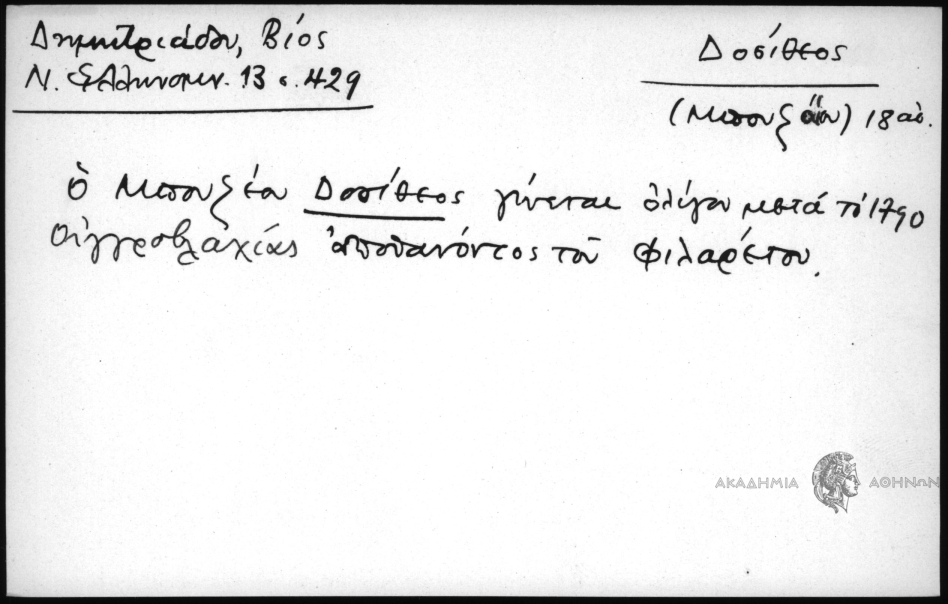 Δημητριάδου, Βίος
Ν. Ἑλληνομν. 13 σ. 429
Δοσίθεος
(Μπουζαίου) 18 αἰ.
ὁ Μπουζέου Δοσίθεος γίνεται ὀλίγον μετά τό 1790
Οὐγγροβλαχίας ἀποθανόντος τοῦ Φιλαρέτου.
ΑΚΑΔΗΜΙΑ ΑΘΗΝΩΝ